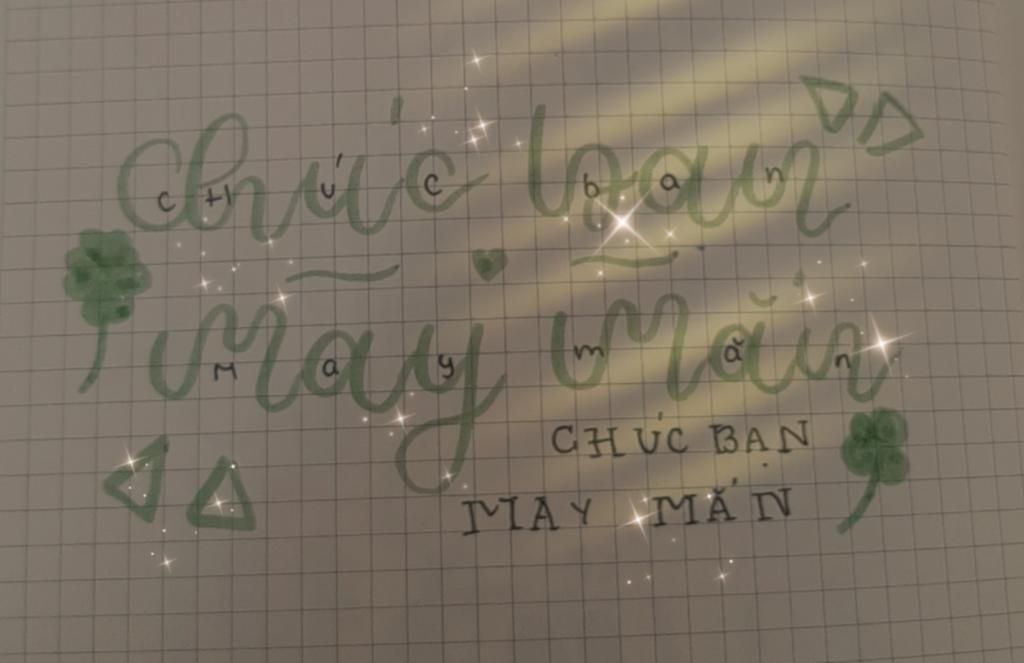 Chúc bạn
c H ú c b a n
may mắn
M a y m ắ n
CHÚC BẠN
MAY MẮN